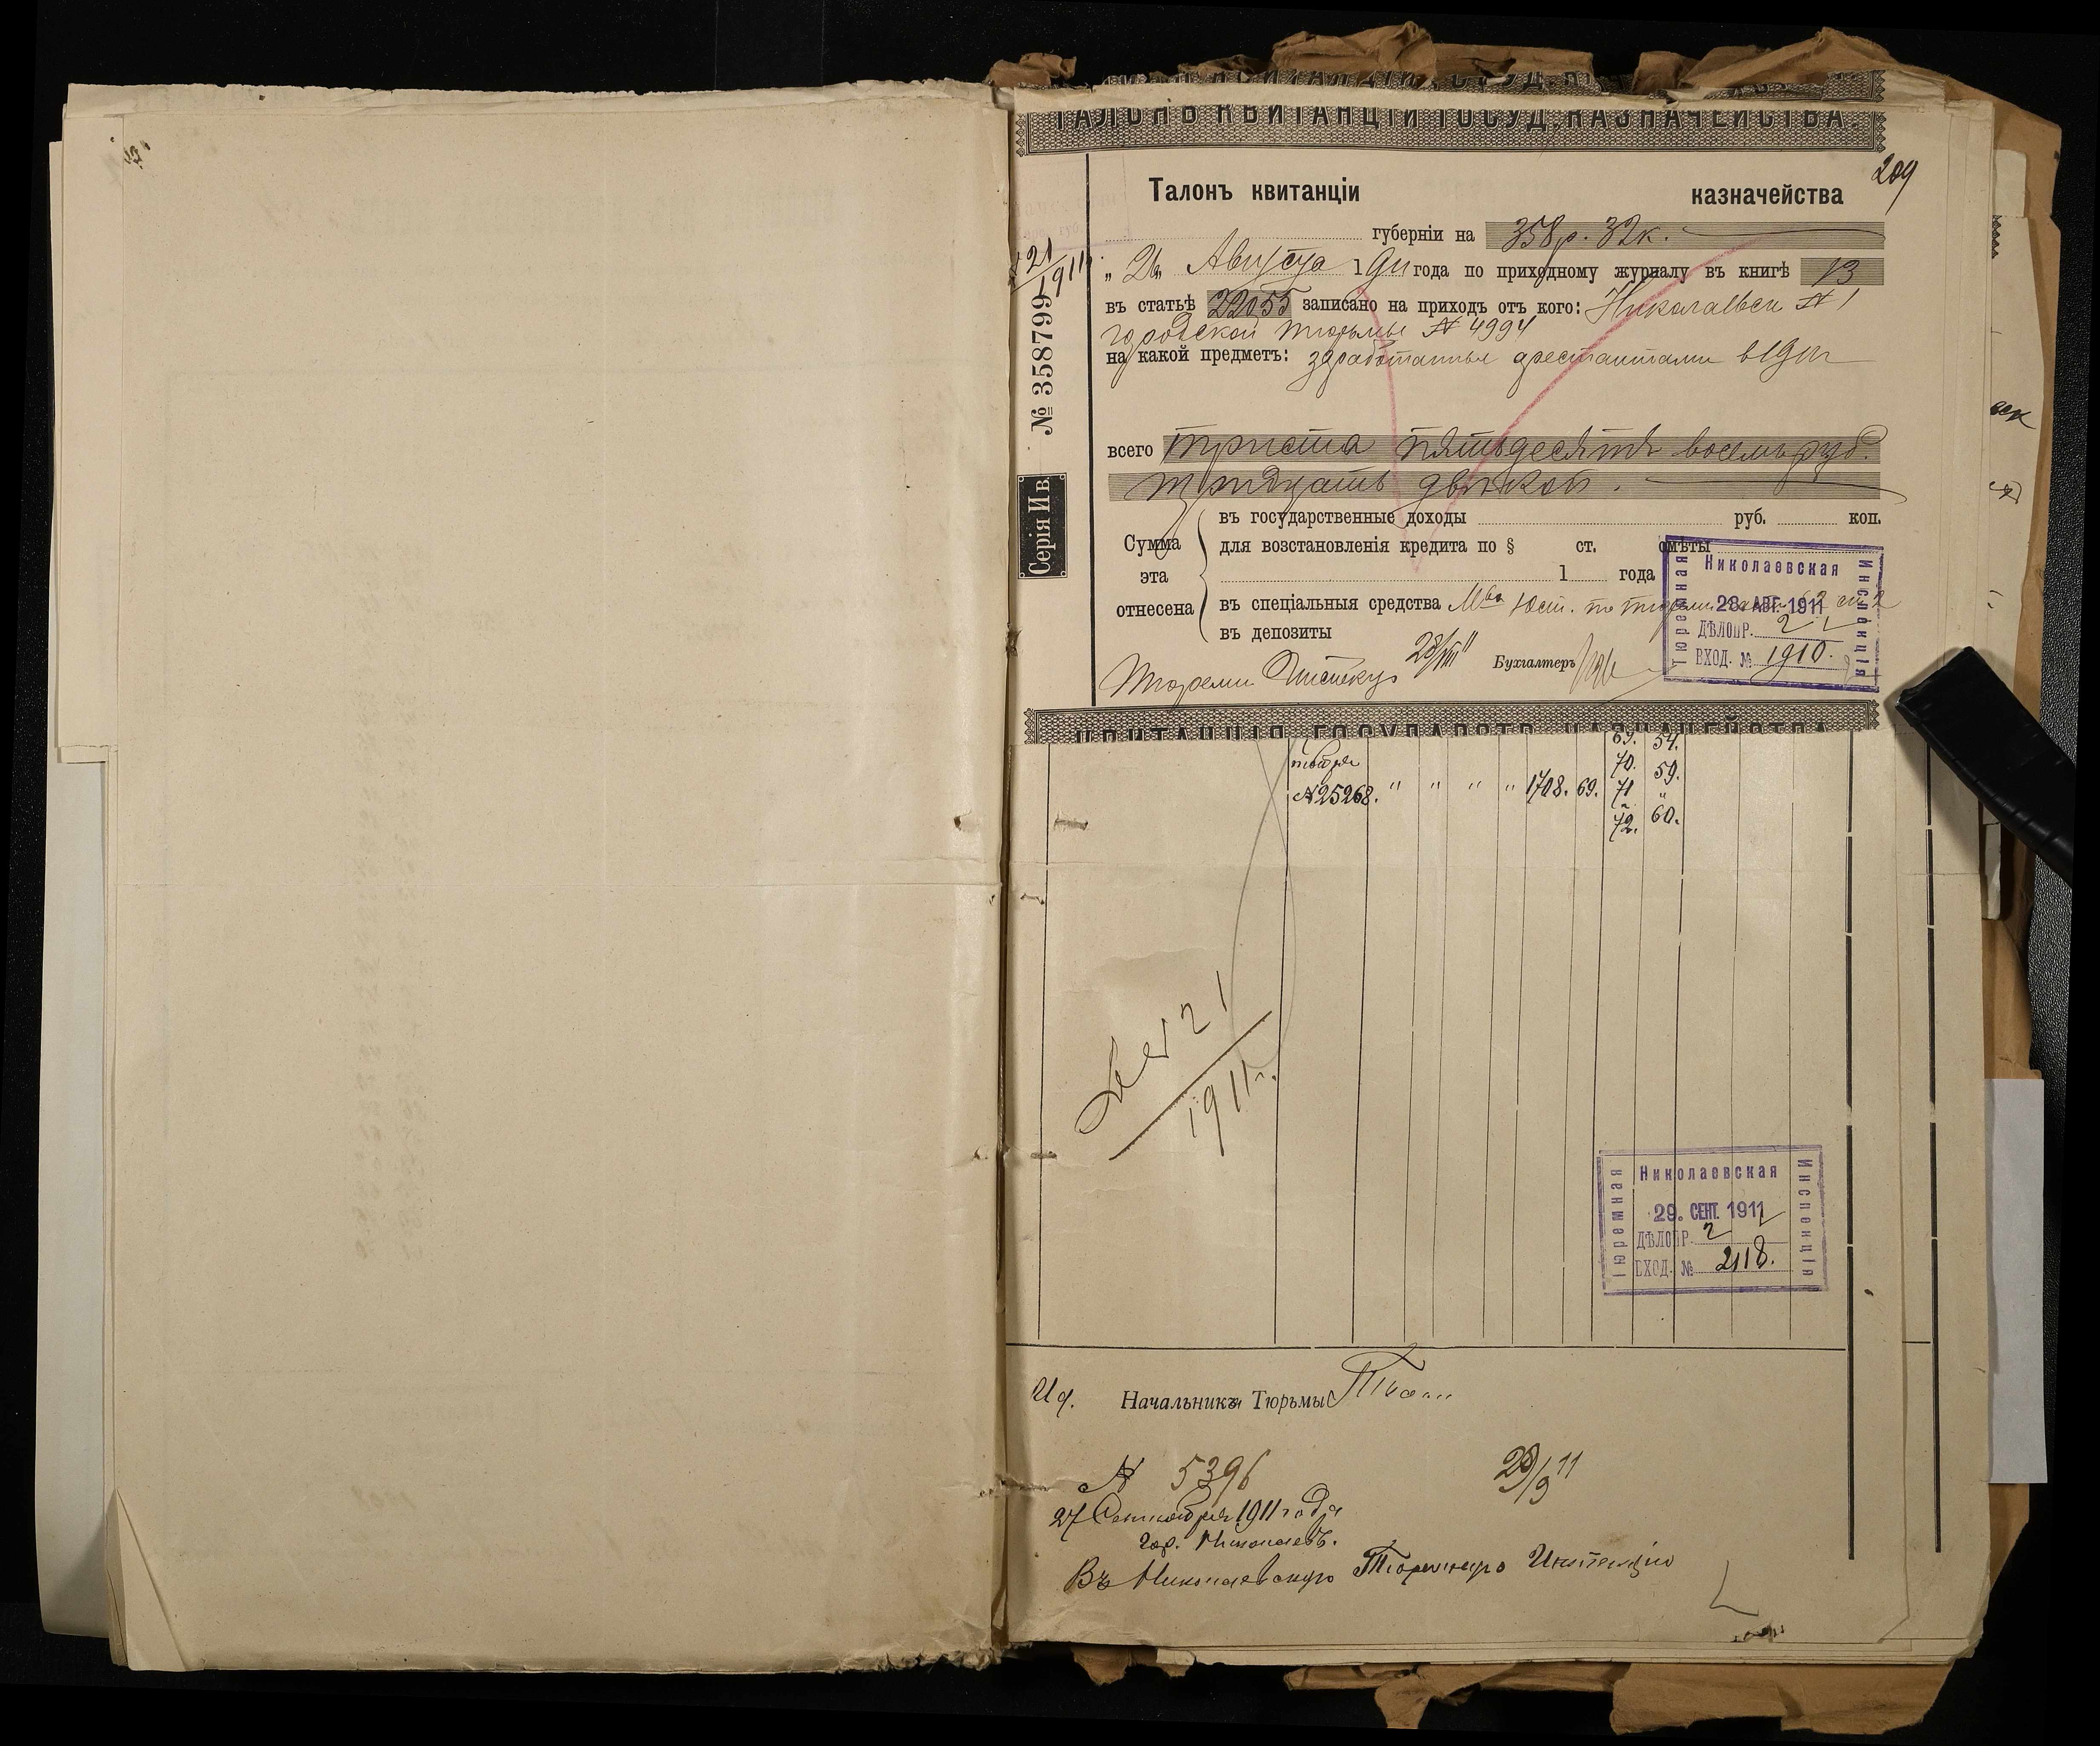 ТАЛОНЪ КВИТАНЦІИ ГОСУД. КАЗНАЧЕЙСТВА.
209
Талонъ квитанціи казначейства
губерніи на 358 р. 32 к.
21/1911
„ 26 „ Августа 1911 года по приходному журналу въ книгѣ 13
въ статьѣ 22055 записано на приходъ отъ кого: Николаевск № 1
городской тюрьмы № 4994
на какой предметъ: заработанные арестантами
всего триста пятьдесятъ восемь руб.
тридцать двѣ коп.
№ 358799
Серія И в.
въ государственные доходы руб. коп.
Сумма эта отнесена
для возстановленія кредита по § ст. смѣты
1 года
въ спеціальныя средства Мва Юст. по
въ депозиты
28/VIII 11
Бухгалтеръ
Николаевская Тюремная Инспекція
28. АВГ. 1911
ДѢЛОПР. 2
ВХОД. № 1910.
КВИТАНЦІЯ ГОСУДАРСТВ. КАЗНАЧЕЙСТВА
69. 54.
70. 59.
№ 25268. " " " " 1708. 69. 71 "
72. 60.
21
1911 г.
Николаевская Тюремная Инспекція
29. СЕНТ. 1911
ДѢЛОПР. 2
ВХОД. № 2118.
Ид. Начальника Тюрьмы
№ 5396
28/9 11
27 Сентября 1911 года
гор. Николаевъ.
Въ Николаевскую Тюремную Инспекцію